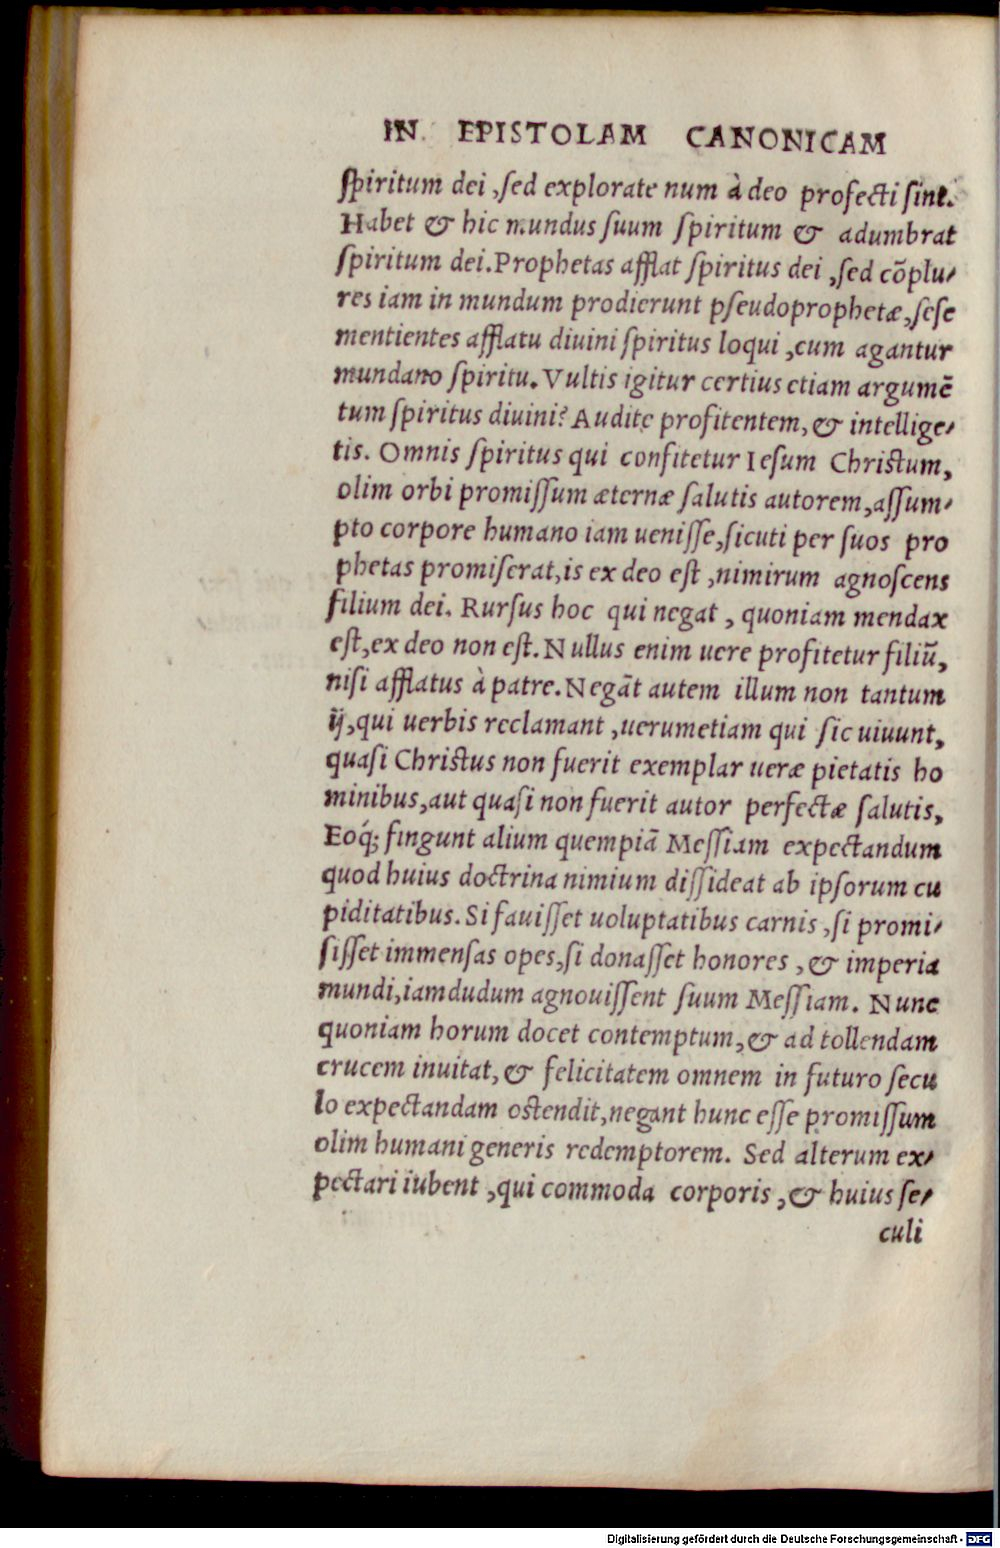 IN EPISTOLAM CANONICAM
ſpiritum dei, ſed explorate num à deo profecti ſint.
Habet & hic mundus ſuum ſpiritum & adumbrat
ſpiritum dei. Prophetas afflat ſpiritus dei, ſed cõplu-
res iam in mundum prodierunt pſeudoprophetæ, ſeſe
mentientes afflatu diuini ſpiritus loqui, cum agantur
mundano ſpiritu. Vultis igitur certius etiam argumẽ
tum ſpiritus diuini? Audite profitentem, & intellige-
tis. Omnis ſpiritus qui confitetur Ieſum Chriſtum,
olim orbi promiſſum æternæ ſalutis autorem, aſſum-
pto corpore humano iam ueniſſe, ſicuti per ſuos pro
phetas promiſerat, is ex deo eſt, nimirum agnoſcens
filium dei. Rurſus hoc qui negat, quoniam mendax
eſt, ex deo non eſt. Nullus enim uere profitetur filiũ,
niſi afflatus à patre. Negãt autem illum non tantum
ij, qui uerbis reclamant, uerumetiam qui ſic uiuunt,
quaſi Chriſtus non fuerit exemplar ueræ pietatis ho
minibus, aut quaſi non fuerit autor perfectæ ſalutis,
Eoq́; fingunt alium quempiã Meſſiam expectandum
quod huius doctrina nimium diſſideat ab ipſorum cu
piditatibus. Si fauiſſet uoluptatibus carnis, ſi promi-
ſiſſet immenſas opes, ſi donaſſet honores, & imperia
mundi, iamdudum agnouiſſent ſuum Meſſiam. Nunc
quoniam horum docet contemptum, & ad tollendam
crucem inuitat, & felicitatem omnem in futuro ſecu
lo expectandam oſtendit, negant hunc eſſe promiſſum
olim humani generis redemptorem. Sed alterum ex-
pectari iubent, qui commoda corporis, & huius ſe-
culi
Digitalisierung gefördert durch die Deutsche Forschungsgemeinschaft - DFG